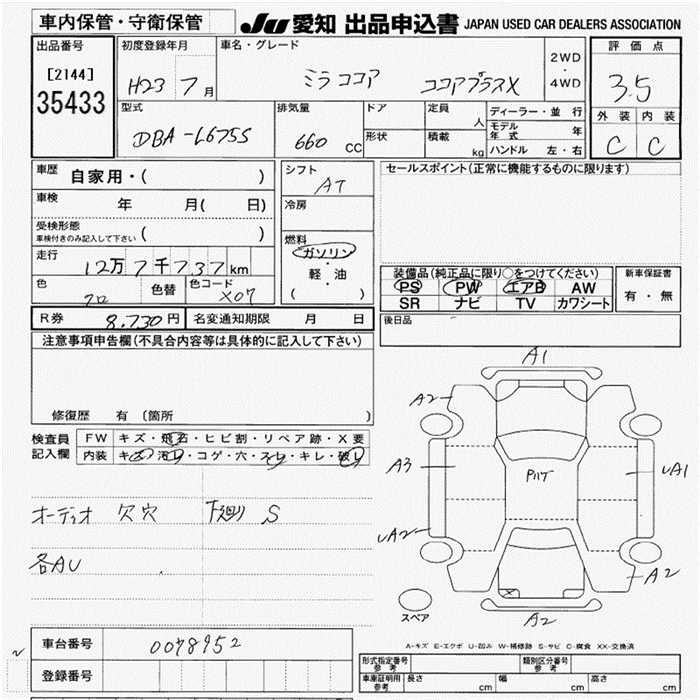 車内保管・守衛保管
JU 愛知 出品申込書 JAPAN USED CAR DEALERS ASSOCIATION
出品番号
[2144]
35433
初度登録年月
H23 7月
車名・グレード
ミラココア ココアプラスX
2WD
・
4WD
評価点
3.5
外装 内装
C C
型式
DBA-L675S
排気量
660 CC
ドア
形状
定員
人
積載
kg
ディーラー・並行
モデル年式 年
ハンドル 左・右
車歴
自家用・( )
車検
年 月( 日)
受検形態
車検付きのみ記入して下さい ( )
走行
12万7千737km
色
クロ
色替
色コード
X07
シフト
AT
冷房
燃料
ガソリン
・
軽・油
( )
セールスポイント(正常に機能するものに限ります)
装備品(純正品に限り○をつけてください)
PS PW エアB AW
SR ナビ TV カワシート
新車保証書
有・無
R券 8,730円 名変通知期限 月 日
後日品
注意事項申告欄(不具合内容等は具体的に記入して下さい)
修復歴 有 (箇所 )
検査員
記入欄
FW キズ・飛石・ヒビ割・リペア跡・X要
内装 キズ・汚レ・コゲ・穴・スレ・キレ・破レ
オーディオ 欠穴 下廻り S
各AU
A1
A2
A3
UA1
UA2
A2
A2
スペア
A-キズ E-エクボ U-凹み W-補修跡 S-サビ C-腐食 XX-交換済
車台番号 0078952
登録番号
形式指定番号
参考
類別区分番号
参考
車庫証明用
参考
長さ cm 幅 cm 高さ cm